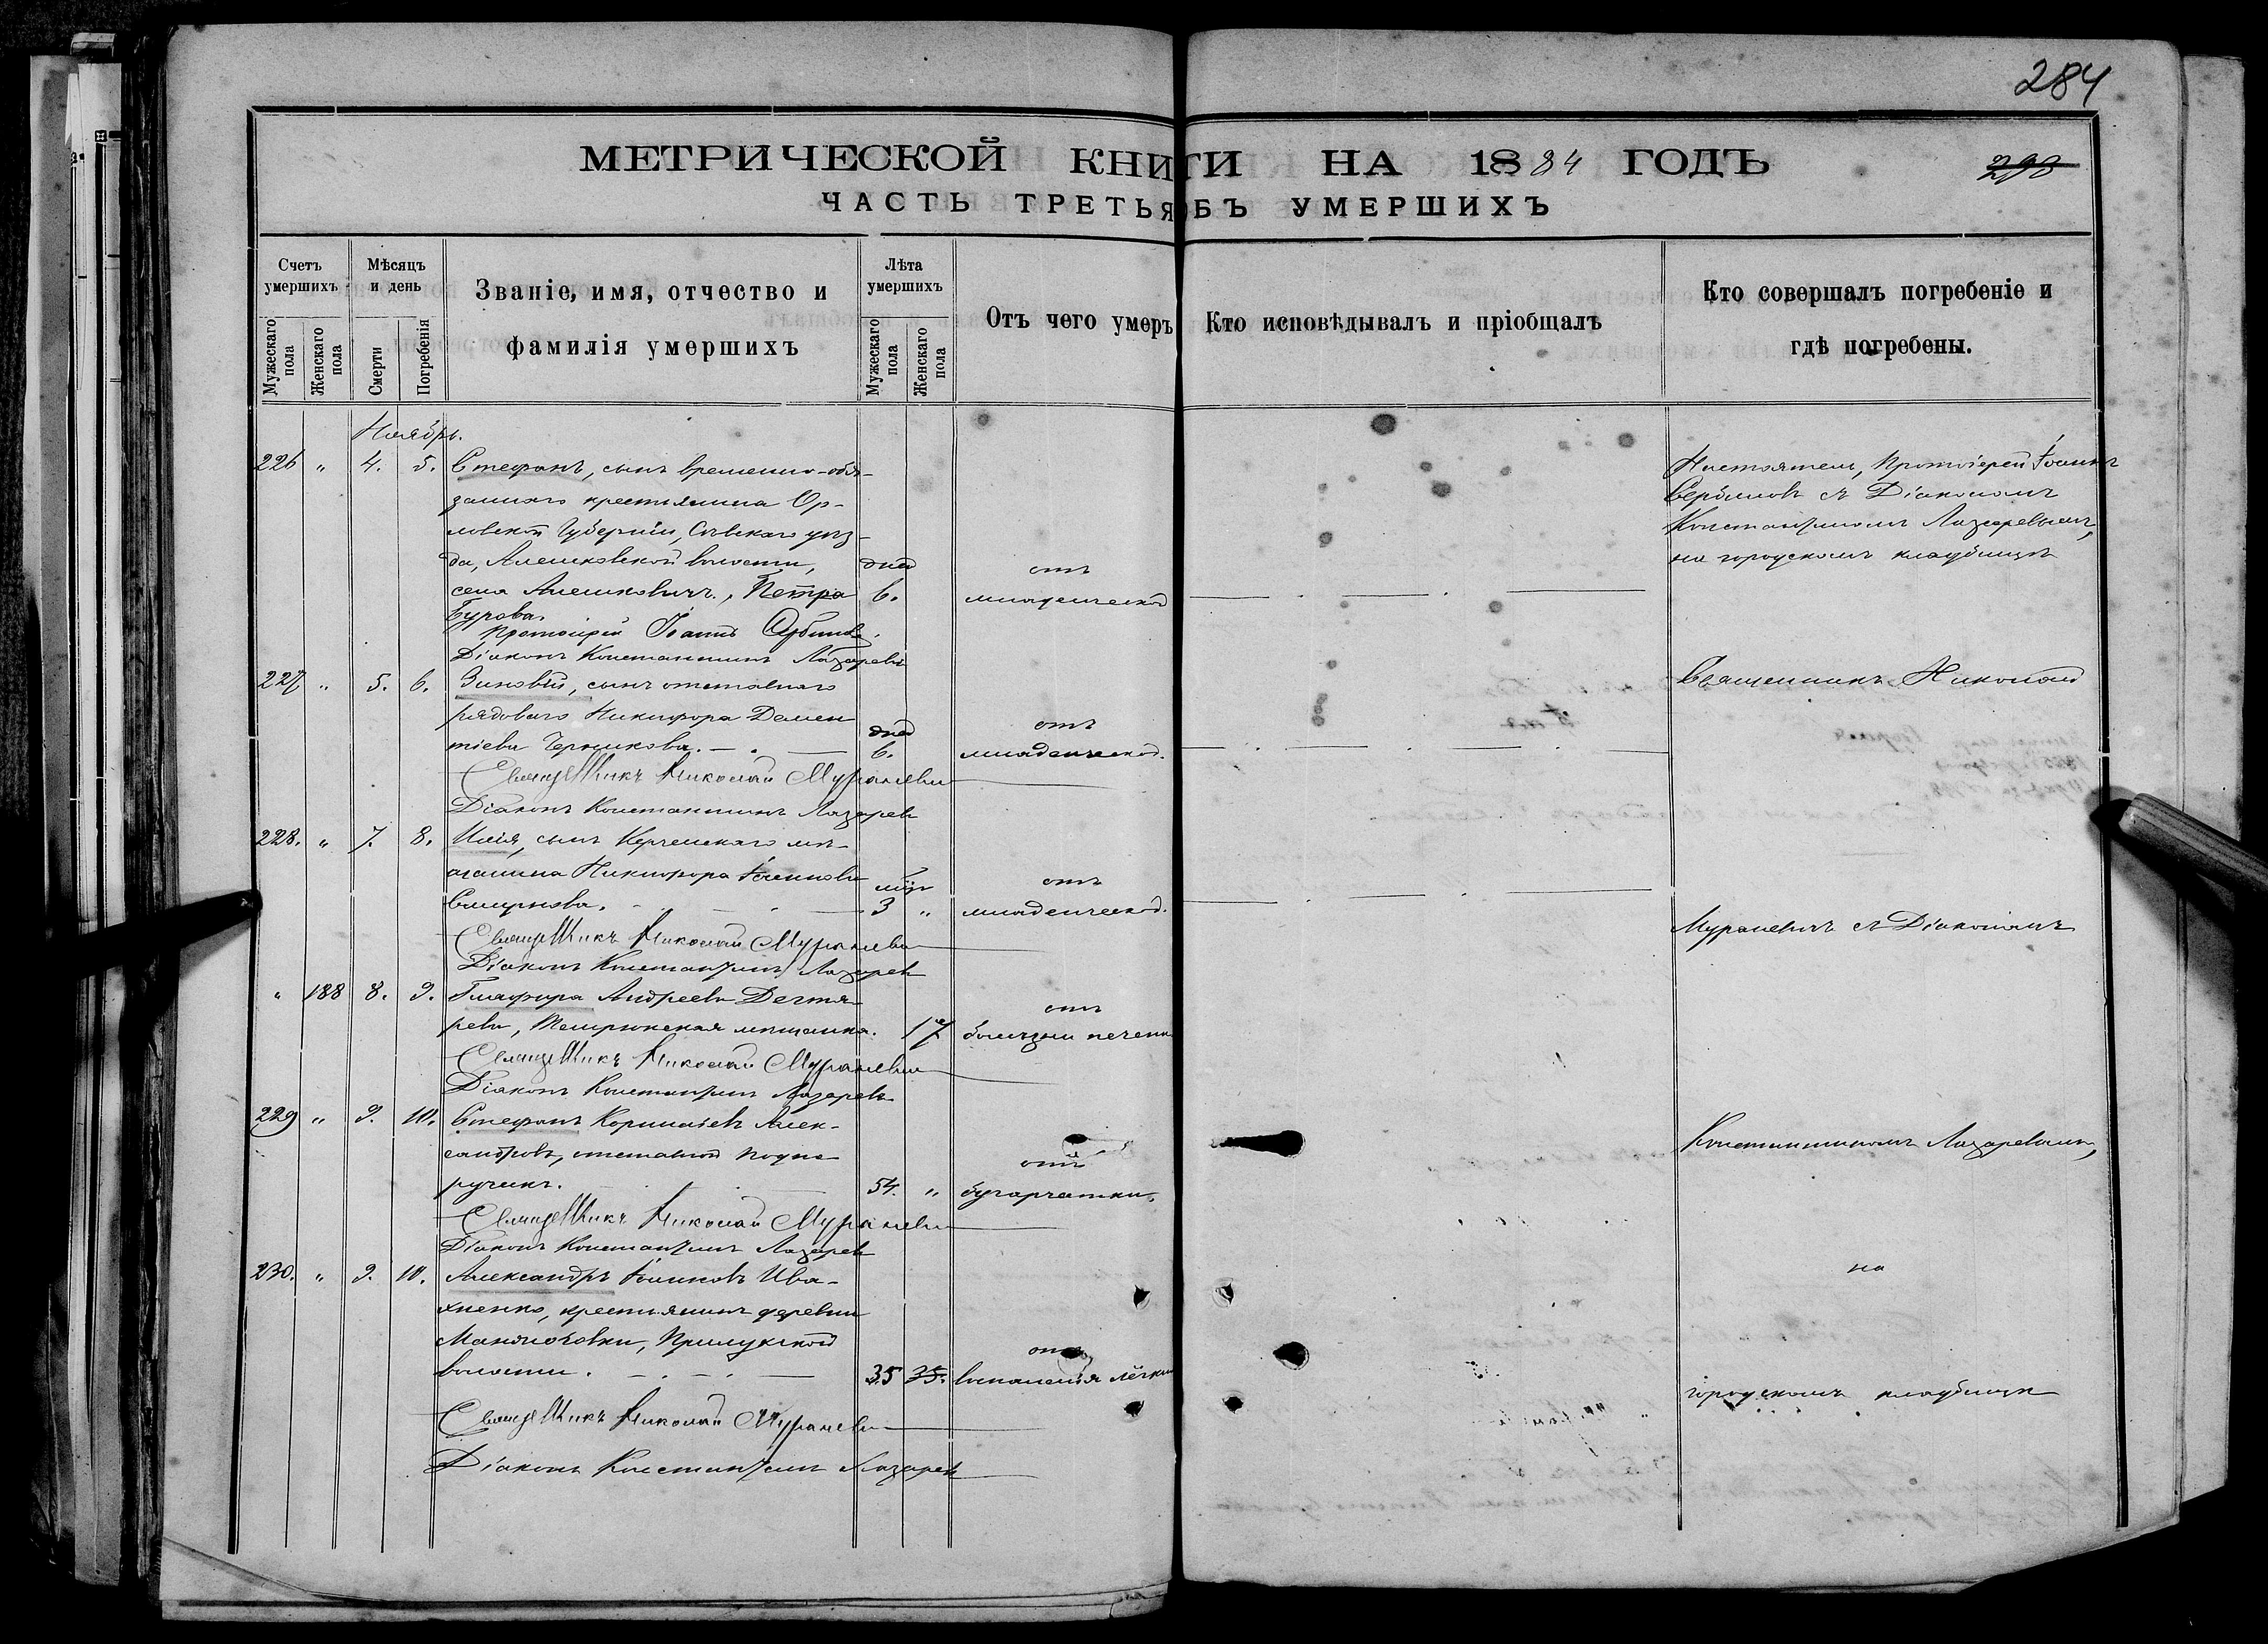 284
МЕТРИЧЕСКОЙ КНИГИ НА 1884 ГОДЪ
290
ЧАСТЬ ТРЕТЬЯ ОБЪ УМЕРШИХЪ
Счетъ умершихъ
Мужескаго пола
Женскаго пола
Мѣсяцъ и день
Смерти
Погребенія
Званіе, имя, отчество и
фамилія умершихъ
Лѣта умершихъ
Мужескаго пола
Женскаго пола
Отъ чего умеръ
Кто исповѣдывалъ и пріобщалъ
Кто совершалъ погребеніе и
гдѣ погребены.
Ноябрь.
226 " 4. 5. Стефанъ, сынъ временно-обя-
заннаго крестьянина Ор-
ловской Губерніи, Сѣвскаго уѣз-
да, Алешковской волости, дней отъ
села Алешковичъ, Петра 6. младенческой
Бурова.
Протоіерей Іоаннъ Сербиновъ.
Діаконъ Константинъ Лазаревъ
Настоятель, Протоіерей Іоаннъ
Сербиновъ съ Діакономъ
Константиномъ Лазаревымъ,
на городскомъ кладбищѣ
227 " 5. 6. Зиновій, сынъ отставнаго
рядоваго Никифора Демен- дней отъ
тіева Черникова. 6. младенческой.
Священникъ Николай Мураневи
Діаконъ Константинъ Лазаревъ
Священникъ Николай
228. " 7. 8. Илія, сынъ Керченскаго мѣ-
щанина Никифора Іоаннова отъ
Смирнова. 3 " младенческой.
Священникъ Николай Мураневи
Діаконъ Константинъ Лазаревъ
Мураневичъ съ Діакономъ
" 188 8. 9. Глафира Андреева Дегтя- отъ
рева, Темрюкская мѣщанка. 17 болѣзни печени
Священникъ Николай Мураневи
Діаконъ Константинъ Лазаревъ
229 " 9. 10. Стефанъ Корниліевъ Алек-
сандровъ, отставной подпо- отъ
ручикъ. 54. " бугорчатки.
Священникъ Николай Мураневи
Діаконъ Константинъ Лазаревъ
Константиномъ Лазаревымъ,
230. " 9. 10. Александръ Іоанновъ Ива-
хненко, крестьянинъ деревни
Прилукской отъ
волости. 35 35. воспаленія лёгкихъ
Священникъ Николай Мураневи
Діаконъ Константинъ Лазаревъ
на
городскомъ кладбищѣ